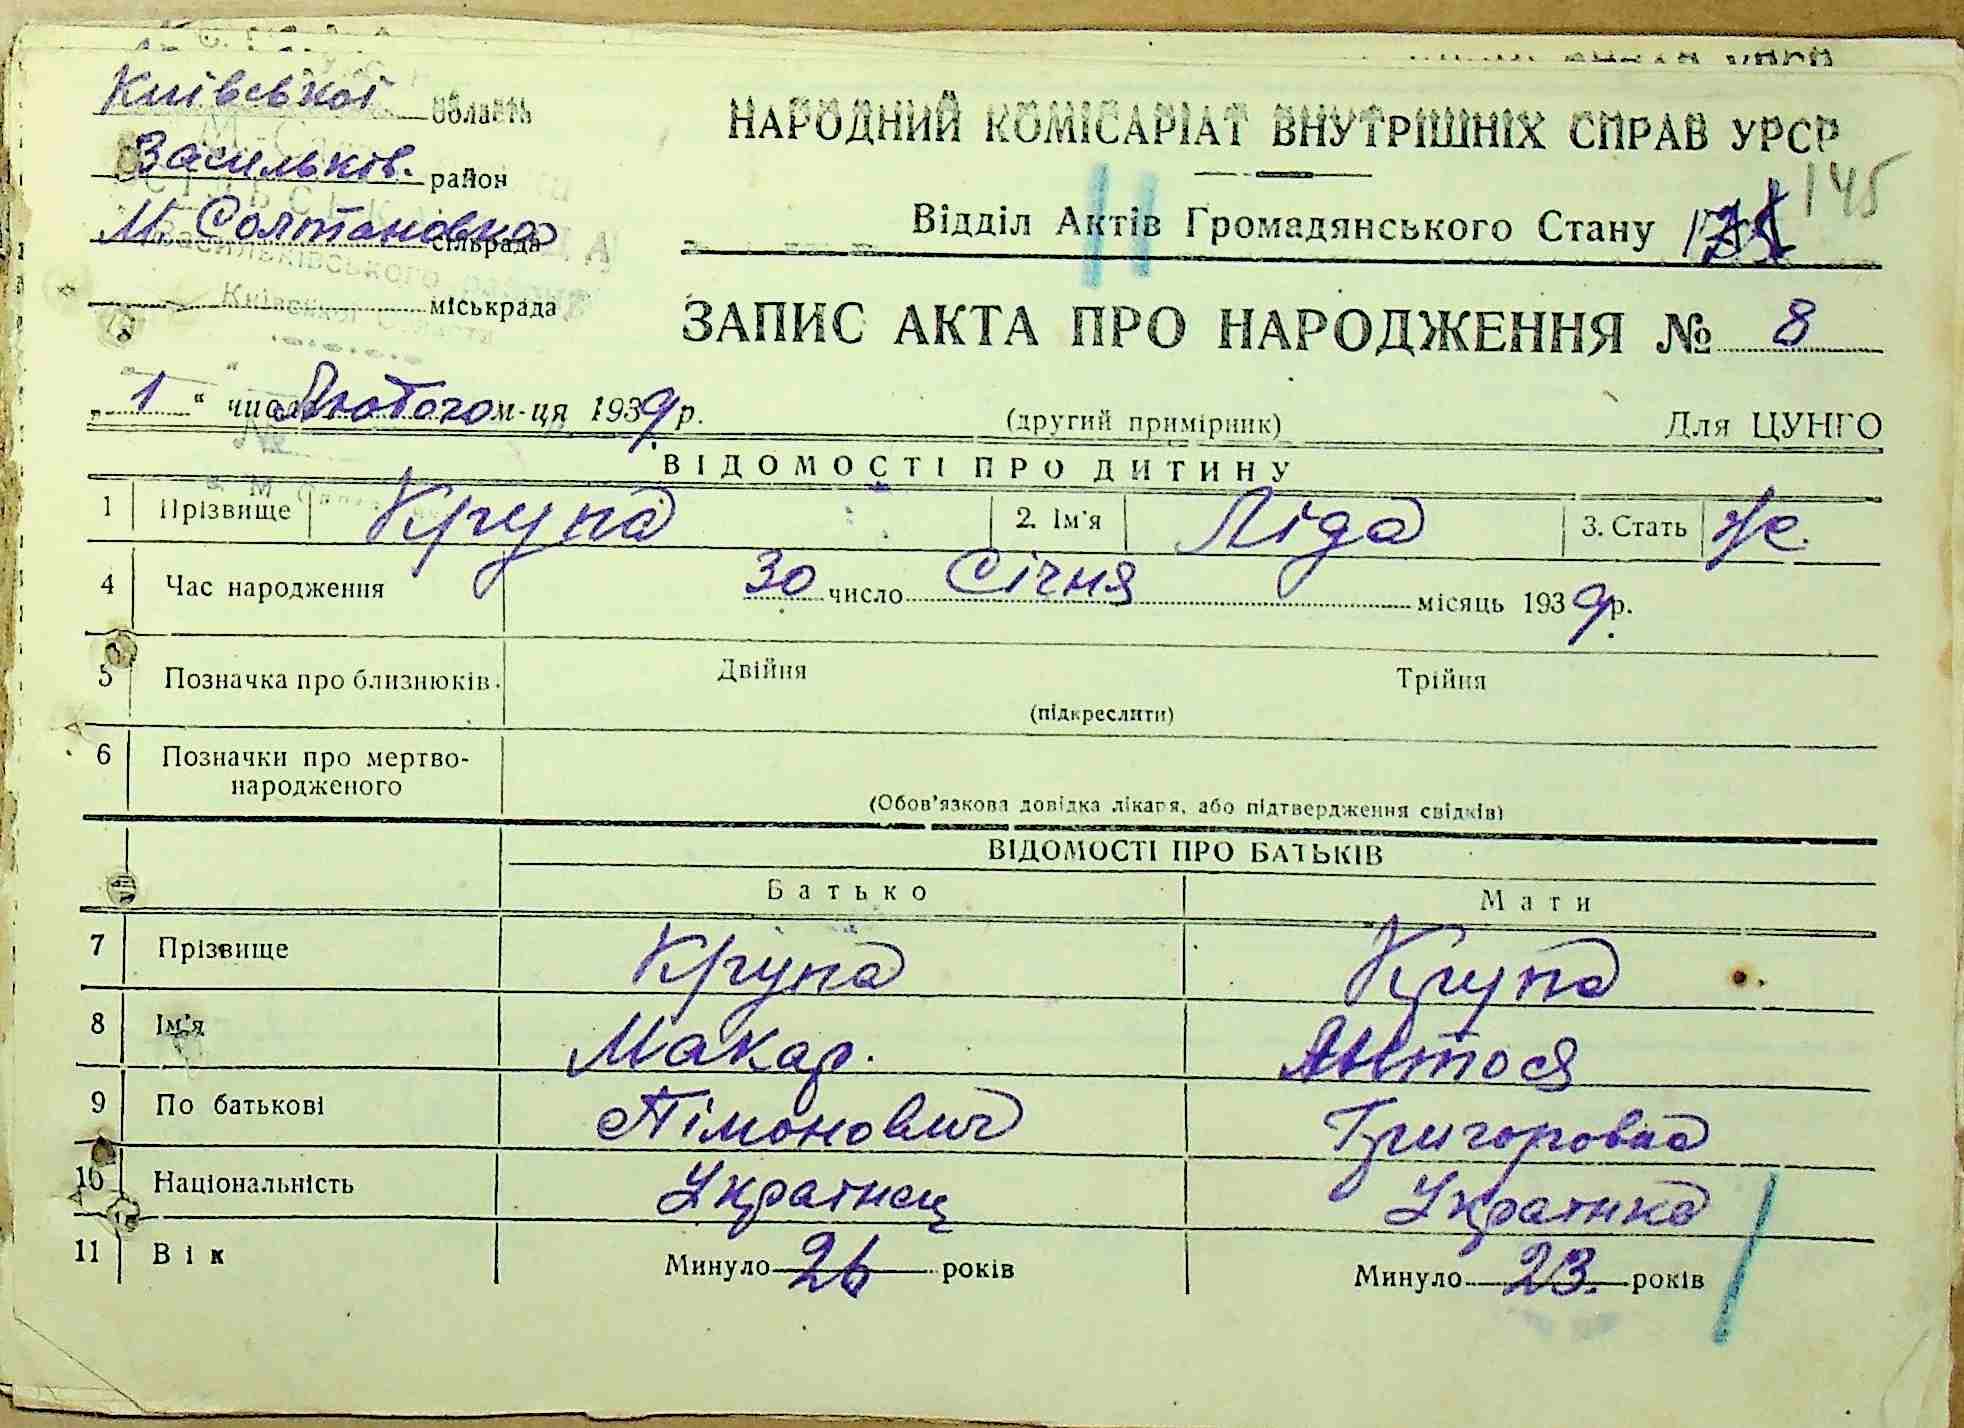 Київської область
Васильків. район
М. Солтановка сільрада
міськрада
НАРОДНИЙ КОМІСАРІАТ ВНУТРІШНІХ СПРАВ УРСР
145
Відділ Актів Громадянського Стану
ЗАПИС АКТА ПРО НАРОДЖЕННЯ № 8
„1“ числа Лютого м-ця 1939 р.
(другий примірник)
Для ЦУНГО
ВІДОМОСТІ ПРО ДИТИНУ
1 Прізвище Крупа 2. Ім'я Ліда 3. Стать Ж.
4 Час народження 30 число Січня місяць 1939 р.
5 Позначка про близнюків. Двійня Трійня
(підкреслити)
6 Позначки про мертво-
народженого
(Обов'язкова довідка лікаря, або підтвердження свідків)
ВІДОМОСТІ ПРО БАТЬКІВ
Батько Мати
7 Прізвище Крупа Крупа
8 Ім'я Макар. Антося
9 По батькові Пімонович Григоровна
10 Національність Українец Українка
11 Вік Минуло 26 років Минуло 23. років